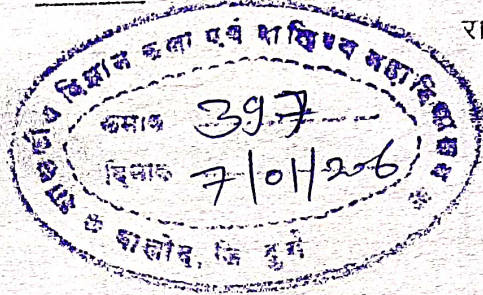 रा
विज्ञान कला एवं वाणिज्य महाविद्यालय
क्रमांक 397
दिनांक 7/01/206
बालोद, जि दुर्ग